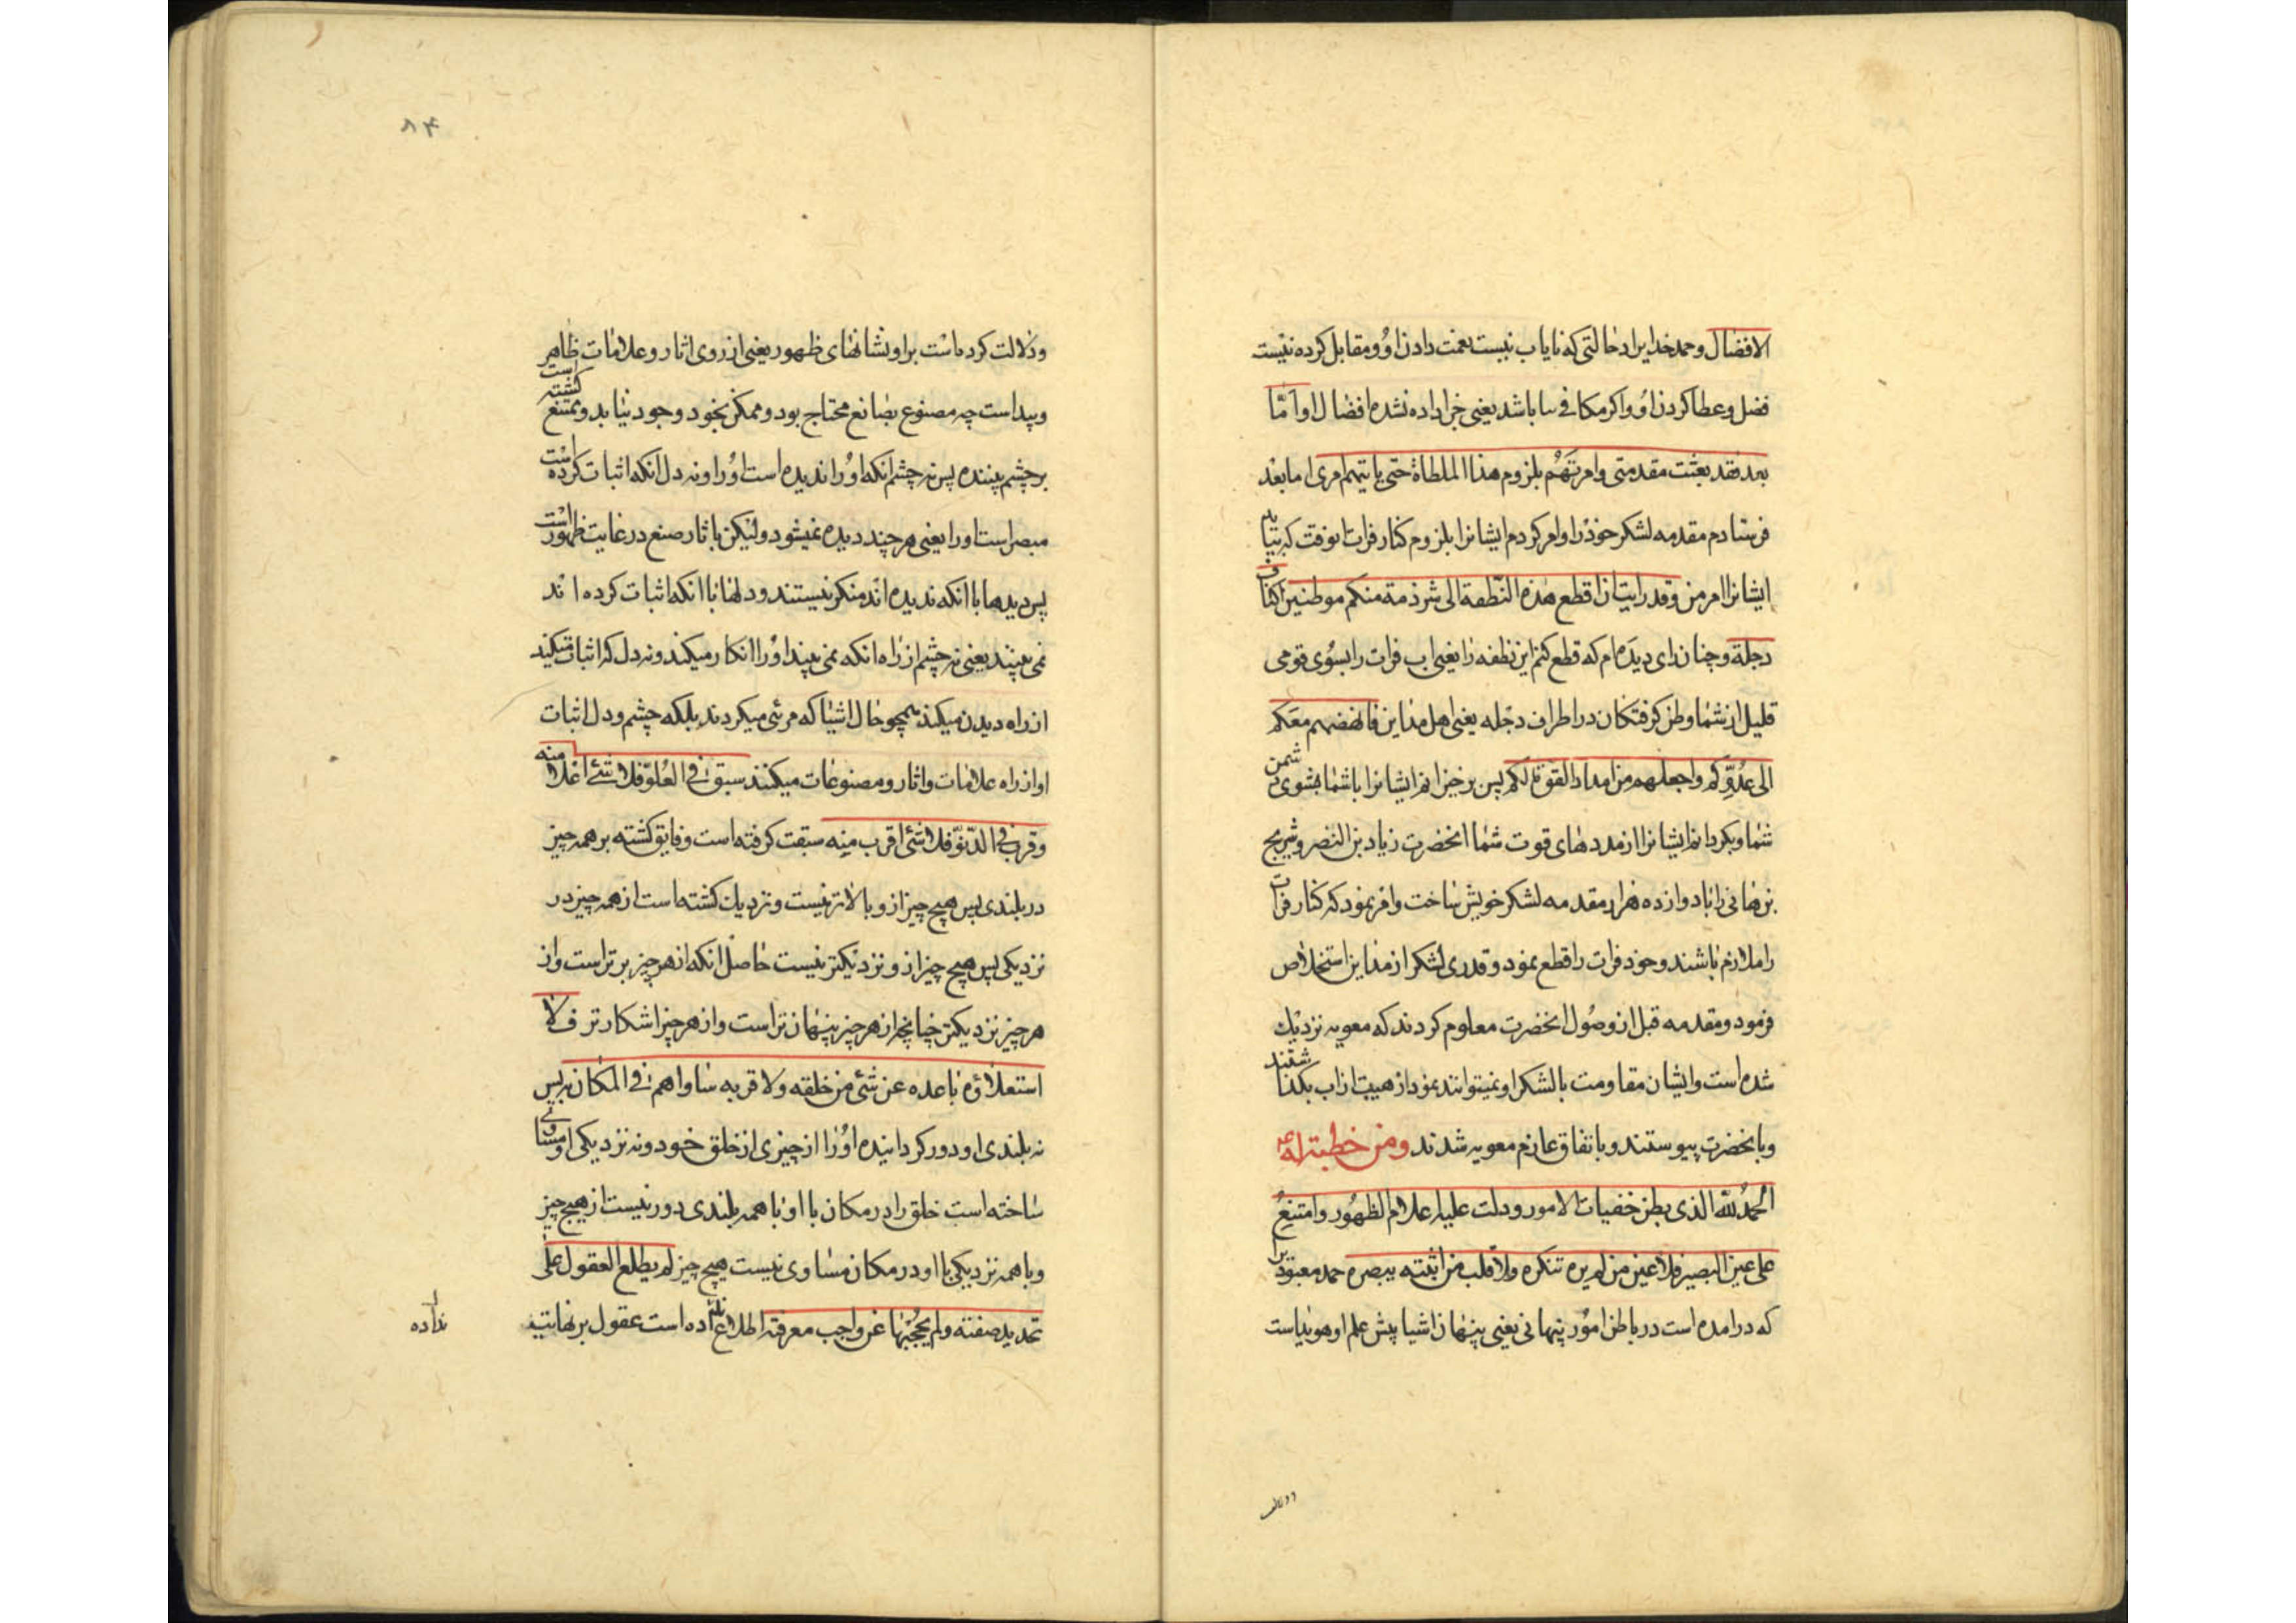 الافضال وحمد خدایراد حالتی که نایاب نیست نعمت دادن او و مقابل کرده نیست
فضل وعطا کردن او واکر مکافی سا باشد یعنی جزا داده نشده افضال او اَمّا
بعد فقد بعثت مقدمتی وامرتهُم بلزوم هذا الملطاة حتی یاتیهم امری اما بعد
فرستادم مقدمه لشکر خود را وامر کردم ایشانرا بلزوم کنار فرات تا بوقت که بیاید
ایشانرا امر من وقد رایت ان اقطع هذه النطفة الی شرذمة منکم موطنین اکناف
دجلة وچنان رای دیده ام که قطع کنم این نطفه را یعنی اب فرات را بسوی قومی
قلیل از شما وطن کرفتکان در اطراف دجله یعنی اهل مداین فانهضهم معکم
الی عدوّکم واجعلهم من امداد القوة لکم پس برخیزانم ایشانرا با شما بسوی دشمن
شما وبکردانم ایشانرا از مددهای قوت شما انحضرت زیاد بن النضر وشریح
بن هانی را با دوازده هزار مقدمه لشکر خویش ساخت وامر نمود که کنار فرات
را ملازم باشند وخود فرات را قطع نمود وقدری لشکر از مداین استخلاص
فرمود ومقدمه قبل از وصول انحضرت معلوم کردند که معویه نزدیک
شده است وایشان مقاومت با لشکر او نمیتوانند نمود از هیبت از اب بکذشتند
وبانحضرت پیوستند وباتفاق عازم معویه شدند ومن خطبة له ع
الحمدُ لله الذی بطن خفیات الامور ودلت علیه اعلام الظهور وامتنع
علی عین البصیر فلا عین من لم یره تنکره ولا قلب من اثبته یبصره حمد معبودیرا
که درامده است در باطن امور پنهانی یعنی پنهان اشیا پیش علم او هویداست
۸۴
ودلالت کرده است بر او نشانهای ظهور یعنی از روی اثار وعلامات ظاهر
وپیداست چه مصنوع بصانع محتاج بود وممکن بخود وجود نیابد وممتنع کشته است
بر چشم بیننده پس نه چشم انکه اورا ندیده است اورا ونه دل انکه اثبات کرده است
مبصر است اورا یعنی هرچند دیده نمیشود ولیکن باثار صنع در غایت ظهور است
پس دیدها با انکه ندیده اند منکر نیستند ودلها با انکه اثبات کرده اند
نمی بینند یعنی نه چشم از راه انکه نمی بیند اورا انکار میکند ونه دل که اثبات میکند
از راه دیدن میکند همچو حال اشیا که مرئی میکردند بلکه چشم ودل اثبات
او از راه علامات واثار ومصنوعات میکنند سبق فی العُلوّ فلا شئ اعلا منه
وقرب فی الدّنوّ فلا شئ اقرب منه سبقت کرفته است وفایق کشته بر همه چیز
در بلندی پس هیچ چیز از و بالاتر نیست ونزدیک کشته است از همه چیز در
نزدیکی پس هیچ چیز از و نزدیکتر نیست حاصل انکه از هر چیز برتر است واز
هر چیز نزدیکتر چنانچه از هر چیز پنهان تر است واز هر چیز اشکارتر فلا
استعلاؤه باعده عن شئ من خلقه ولا قربه ساواهم فی المکان به پس
نه بلندی او دور کردانیده اورا از چیزی از خلق خود ونه نزدیکی او مساوی
ساخته است خلق را در مکان با او با همه بلندی دور نیست از هیچ چیز
وبا همه نزدیکی با او در مکان مساوی نیست هیچ چیز لم یطلع العقول علی
تحدید صفته ولم یحجبها عن واجب معرفته اطلاع نداده است عقول بر نهایت
نداده